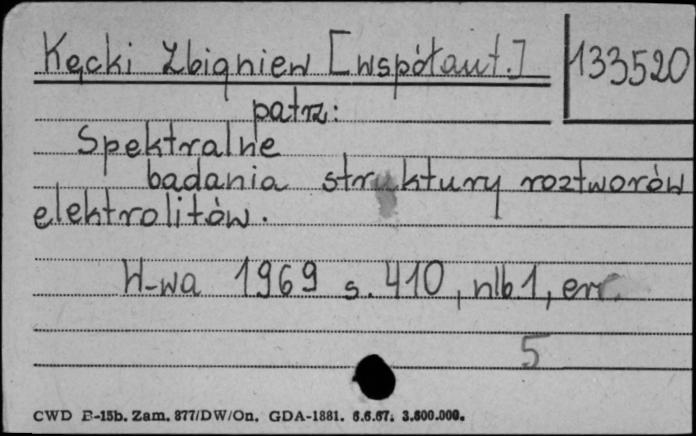 Kęcki Zbigniew [współaut.] 133520
patrz:
Spektralne
badania struktury roztworów
elektrolitów.
W-wa 1969 s. 410, nlb.1, err.
5
CWD B-15b. Zam. 877/DW/On. GDA-1881. 6.6.67. 3.600.000.